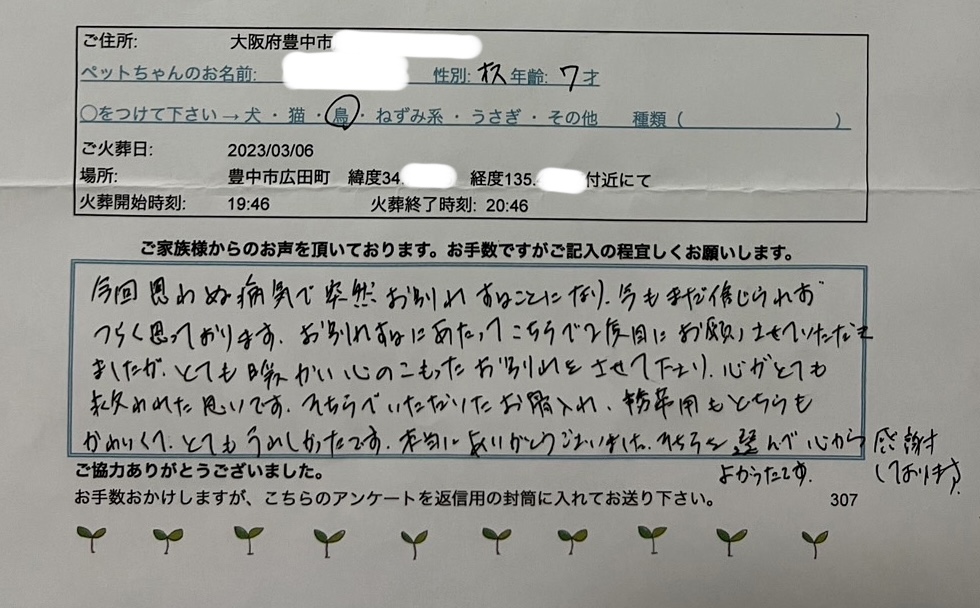 ご住所: 大阪府豊中市
ペットちゃんのお名前: 性別: オス 年齢: 7才
○をつけて下さい→犬・猫・鳥・ねずみ系・うさぎ・その他 種類( )
ご火葬日: 2023/03/06
場所: 豊中市広田町 緯度34. 経度135. 付近にて
火葬開始時刻: 19:46 火葬終了時刻: 20:46
ご家族様からのお声を頂いております。お手数ですがご記入の程宜しくお願いします。
今回思わぬ病気で突然お別れすることになり、今もまだ信じられず
つらく思っております。お別れするにあたってこちらで2度目にお願いさせていただき
ましたが、とても暖かい心のこもったお別れをさせて下さり、心がとても
救われた思いです。そちらでいただいたお骨入れ、携帯用もどちらも
かわいくて、とてもうれしかったです。本当にありがとうございました。そちらを選んで心から感謝
よかったです。 しております。
ご協力ありがとうございました。
お手数おかけしますが、こちらのアンケートを返信用の封筒に入れてお送り下さい。 307